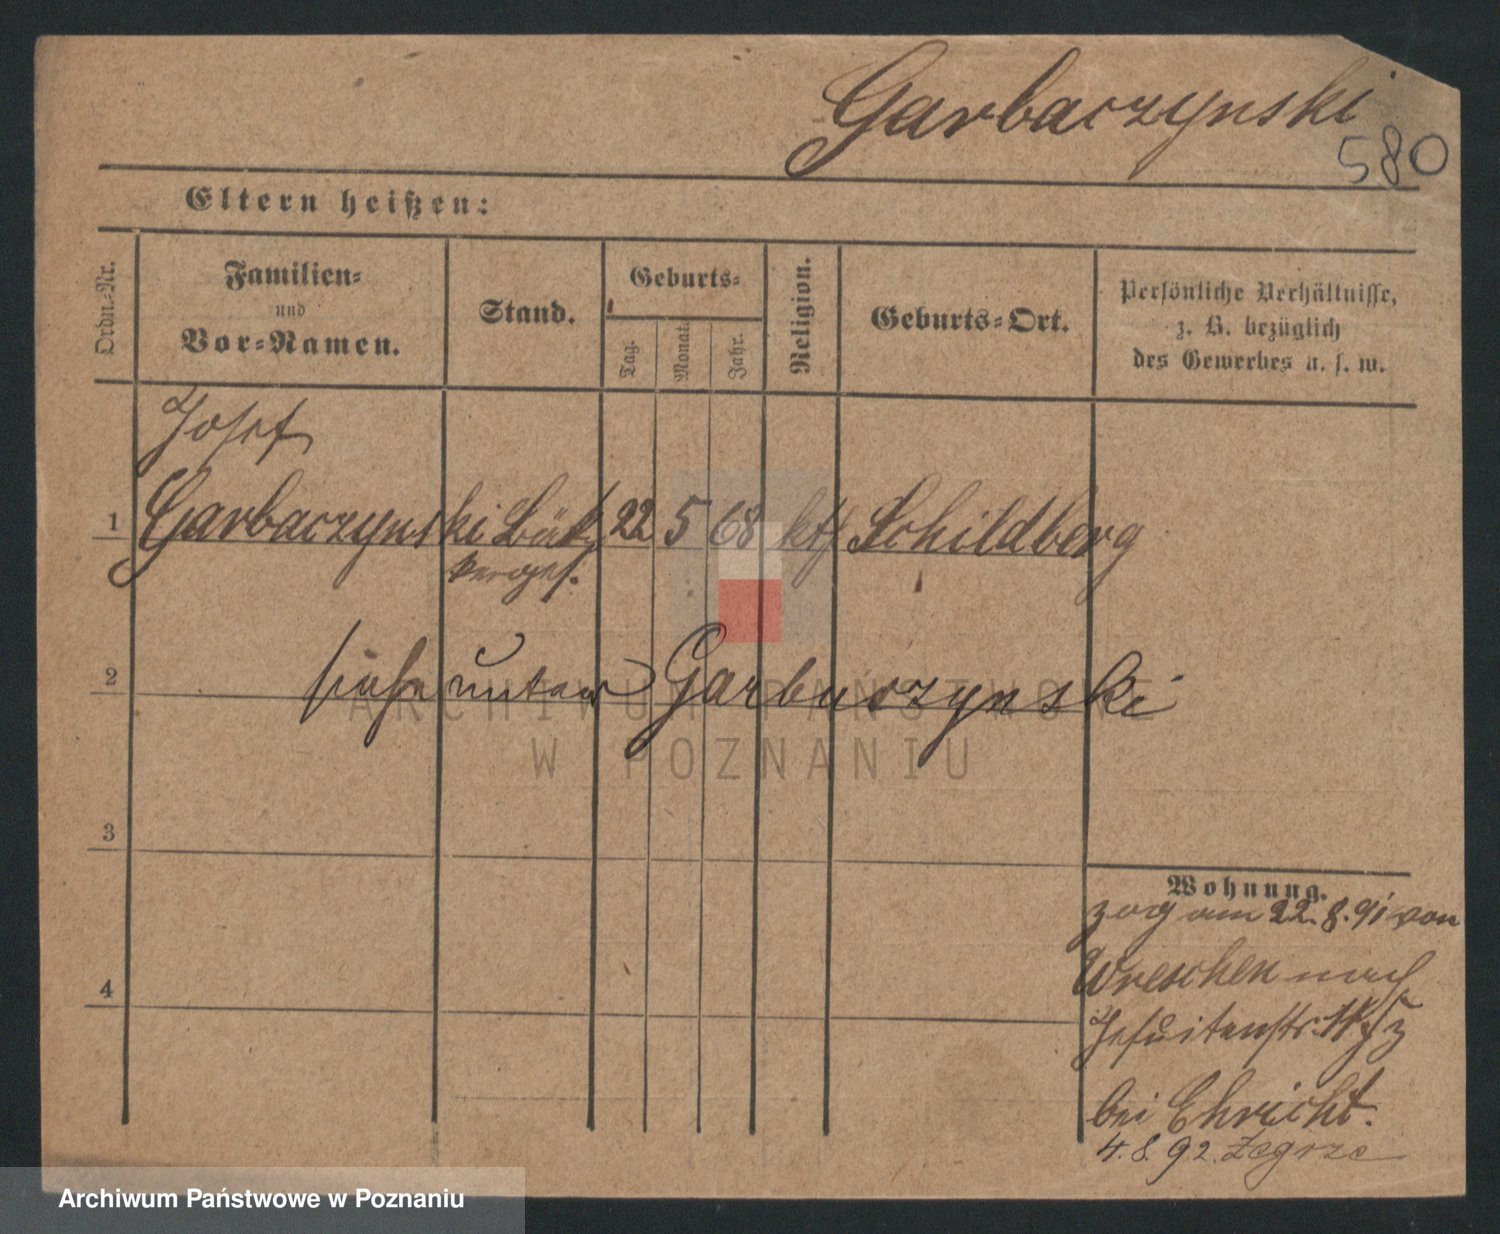 Garbaczynski
580
Eltern heißen:
Ordn.=Nr.
Familien=
und
Vor=Namen.
Stand.
Geburts=
Tag.
Monat.
Jahr.
Religion.
Geburts=Ort.
Persönliche Verhältnisse,
z. B. bezüglich
des Gewerbes u. s. w.
Josef
1 Garbaczynski Bäk 22 5 68 kth Schildberg
kerges.
2 siehe unter Garbuczynski
ARCHIWUM PAŃSTWOWE
W POZNANIU
3
4
Wohnung.
zog am 22.8.91 von
Wreschen nach
Jesuitenstr.
bei Ehricht.
4.8.92. Zegrze
Archiwum Państwowe w Poznaniu